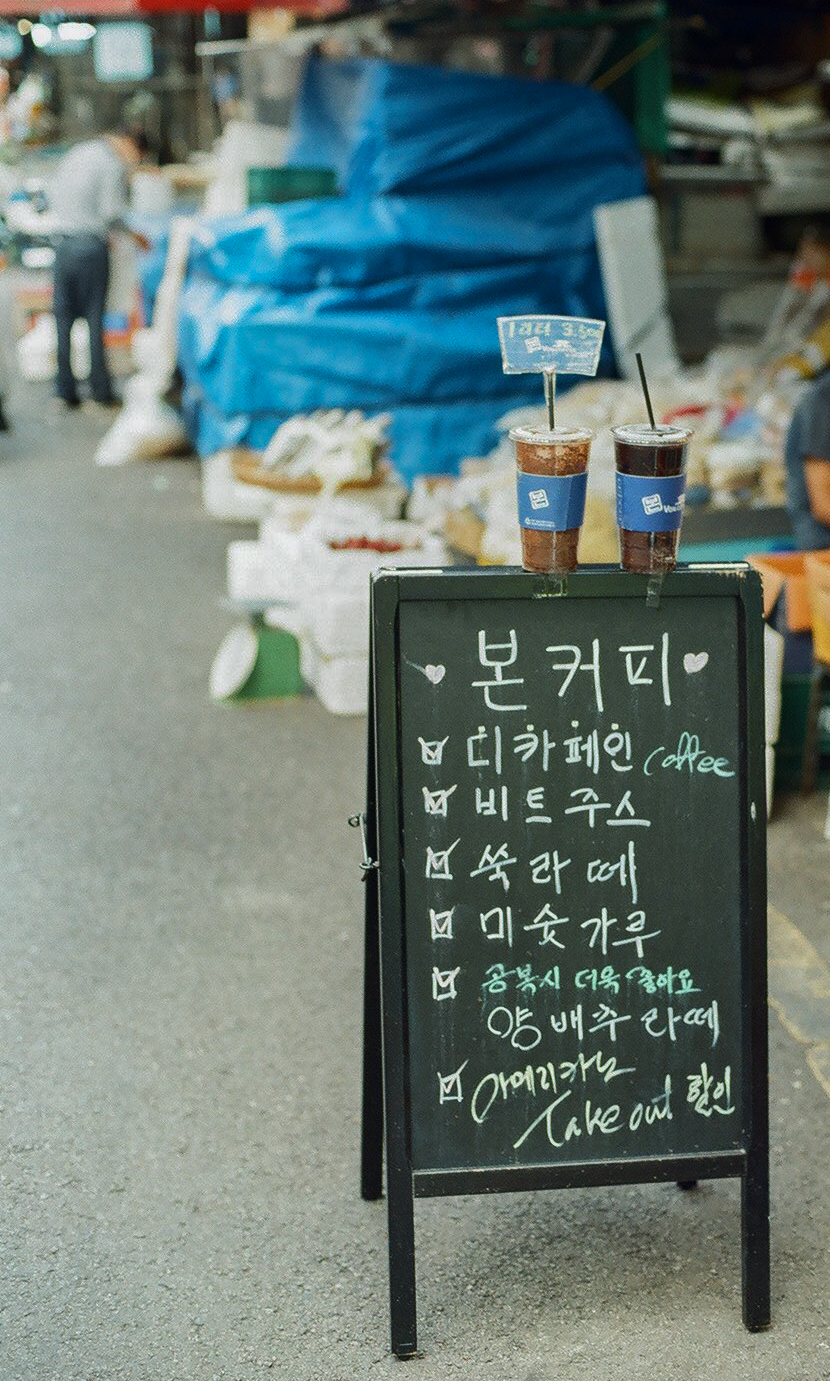 1리터 3.500
본커피
디카페인 coffee
비트주스
쑥라떼
미숫가루
공복시 더욱 좋아요
양배추라떼
아메리카노
Take out 할인